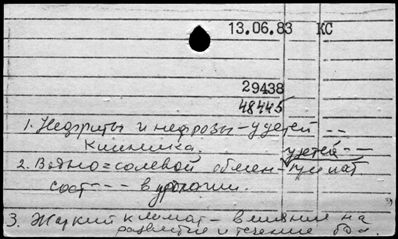 13.06.83 КС
29438
48445
1. Нефриты и нефрозы - у детей --
Клиника.
у детей --
2. Водно=солевой обмен-
сост --- в урологии.
3. Жаркий климат - влияние на
развитие и течение бол.